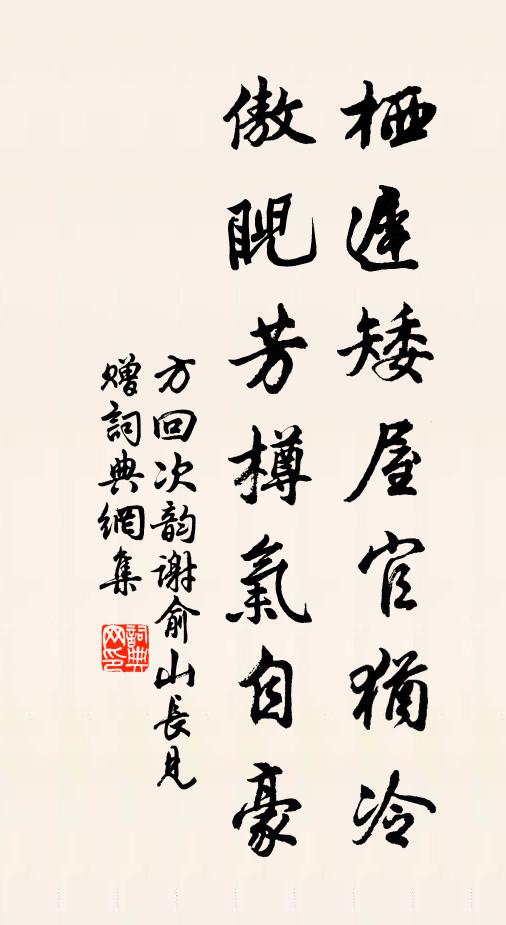 栖遲矮屋官猶冷
傲睨芳樽氣自豪
方回次韵谢俞山長見
贈詞典網集
詞典
网印